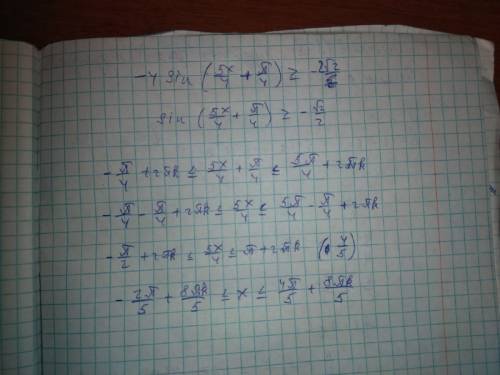 -4 sin (5x/4 + π/4) ≥ -2√2
sin (5x/4 + π/4) ≥ -√2/2
-π/4 + 2πk ≤ 5x/4 + π/4 ≤ 5π/4 + 2πk
-π/4 - π/4 + 2πk ≤ 5x/4 ≤ 5π/4 - π/4 + 2πk
-π/2 + 2πk ≤ 5x/4 ≤ π + 2πk (· 4/5)
-2π/5 + 8πk/5 ≤ x ≤ 4π/5 + 8πk/5